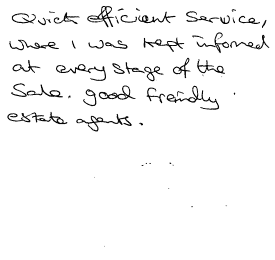 Quick efficient service,
where I was kept informed
at every stage of the
Sale. good friendly
estate agents.